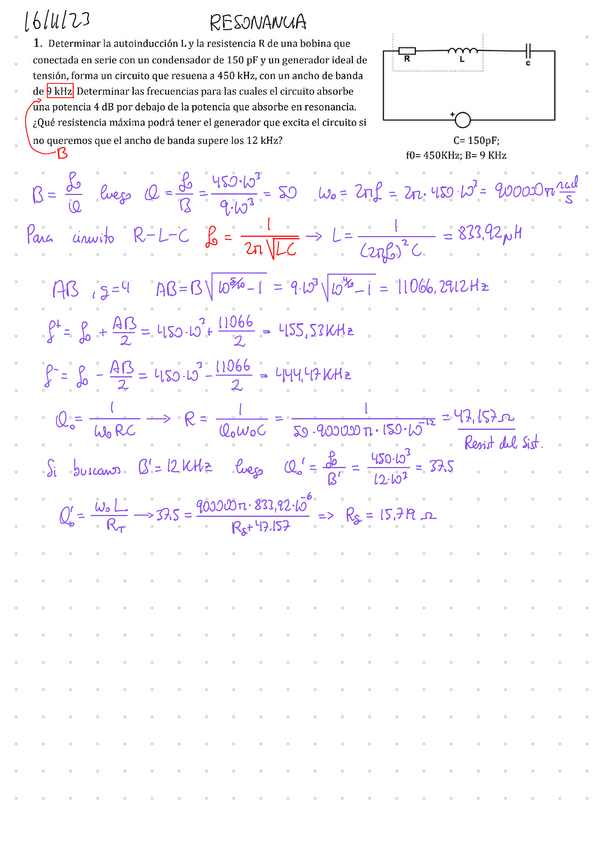 16/11/23 RESONANCIA
1. Determinar la autoinducción L y la resistencia R de una bobina que
conectada en serie con un condensador de 150 pF y un generador ideal de
tensión, forma un circuito que resuena a 450 kHz, con un ancho de banda
de 9 kHz. Determinar las frecuencias para las cuales el circuito absorbe
una potencia 4 dB por debajo de la potencia que absorbe en resonancia.
¿Qué resistencia máxima podrá tener el generador que excita el circuito si
no queremos que el ancho de banda supere los 12 kHz?
B
R L c
+
C= 150pF;
f0= 450KHz; B= 9 KHz
B = f₀/Q luego Q = f₀/B = 450·10³/9·10³ = 50 ω₀ = 2πf₀ = 2π·450·10³ = 900000π rad/s
Para circuito R-L-C f₀ = 1/2π√LC → L = 1/(2πf₀)²C = 833,92μH
AB , δ=4 AB=B√10^δ/10 -1 = 9·10³√10^4/10 -1 = 11066,2912Hz
f⁺ = f₀ + AB/2 = 450·10³ + 11066/2 = 455,53KHz
f⁻ = f₀ - AB/2 = 450·10³ - 11066/2 = 444,47KHz
Q₀ = 1/ω₀RC → R = 1/Q₀ω₀C = 1/50·900000π·150·10⁻¹² = 47,157Ω
Resist del Sist.
Si buscamos B'=12KHz luego Q₀' = f₀/B' = 450·10³/12·10³ = 37.5
Q₀' = ω₀L/R_T → 37.5 = 900000π·833,92·10⁻⁶/Rg+47.157 => Rg = 15,719 Ω